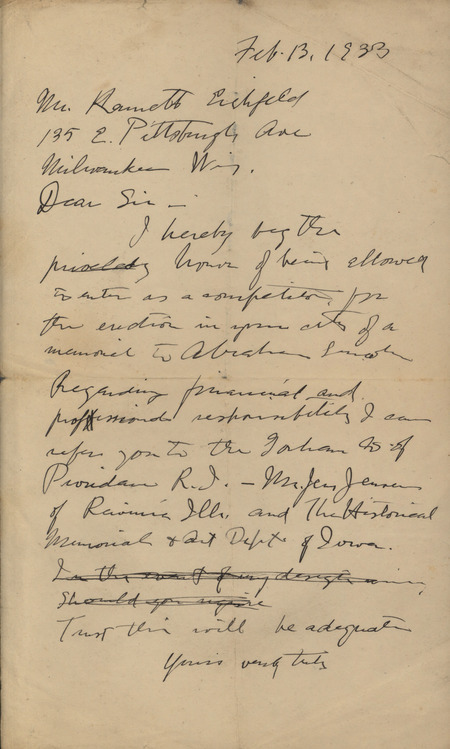 Feb. 13, 1933
Mr. Kenneth Eichfeld
135 E. Pittsburgh Ave
Milwaukee Wis.
Dear Sir –
I hereby beg the
honor of being allowed
to enter as a competitor for
the erection in your city of a
memorial to Abraham Lincoln
Regarding financial and
professional responsibility I can
refer you to the Gorham Co of
Providence R.I. – Mr. Jens Jensen
of Ravinia Ills. and The Historical
Memorial & Art Dept of Iowa.
In the event of my design
Should you require
Trust this will be adequate
Yours very truly